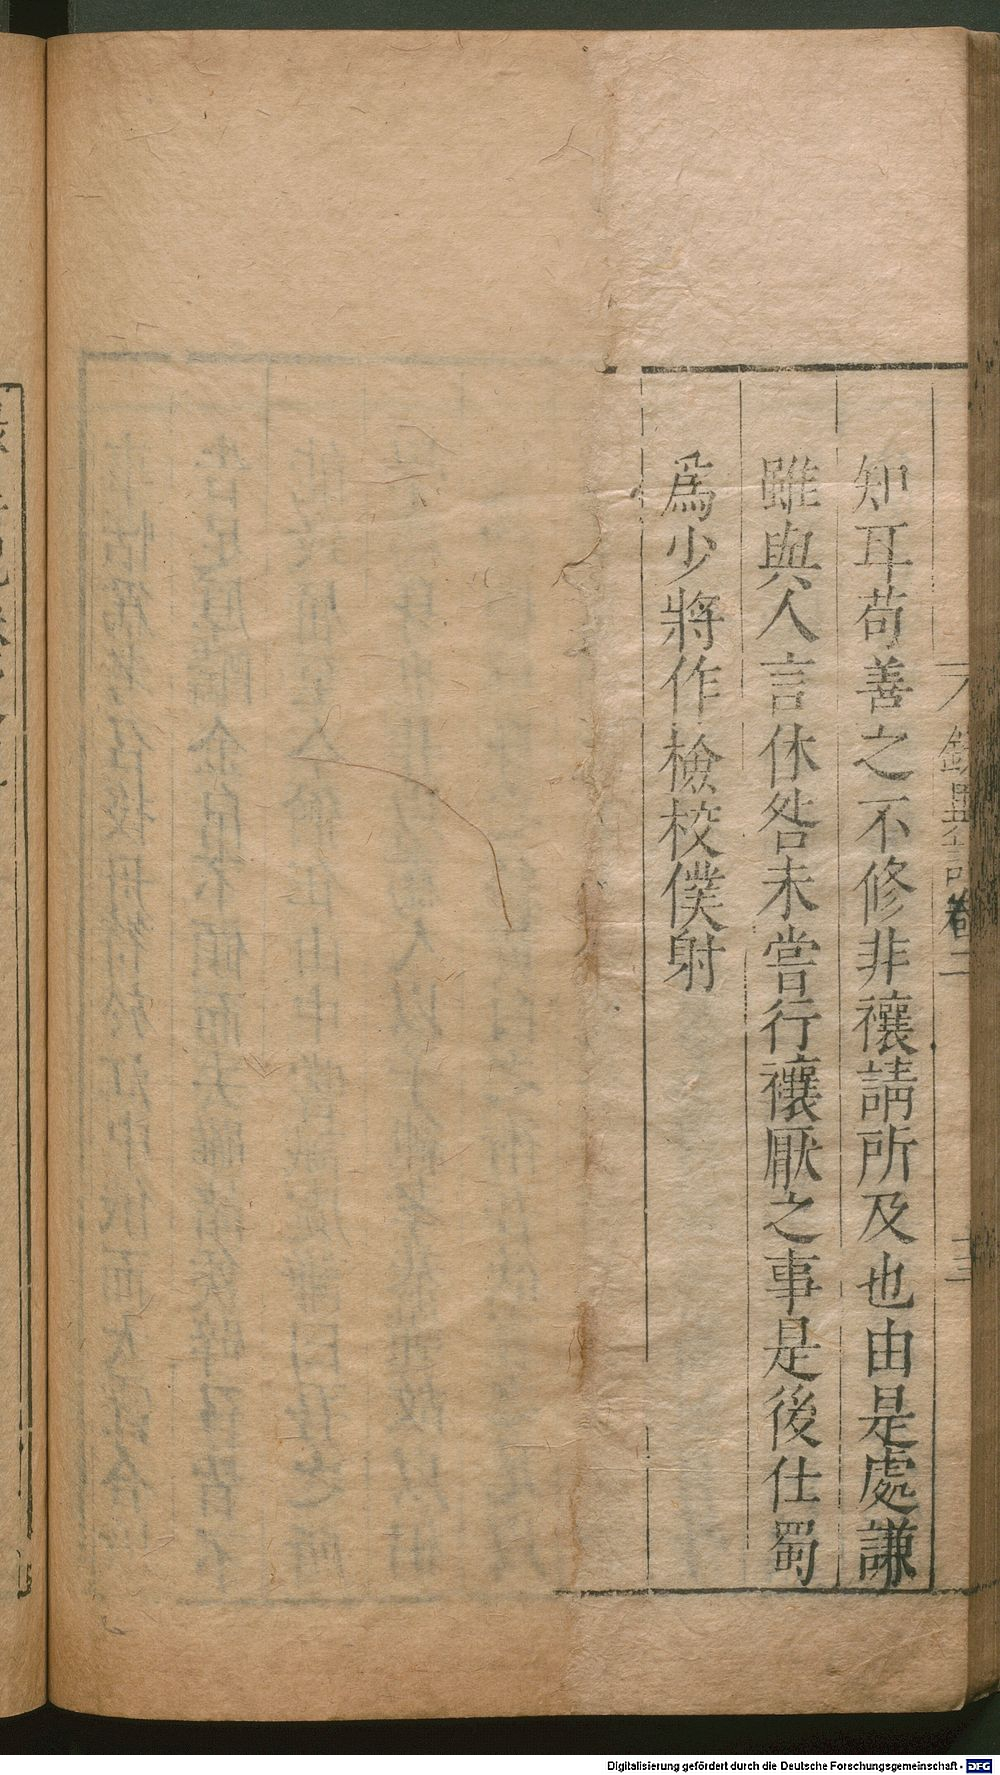 知耳苟善之不修非禳請所及也由是處謙
雖與人言休咎未嘗行禳厭之事是後仕蜀
為少將作檢校僕射
錄異記卷二
十三
Digitalisierung gefördert durch die Deutsche Forschungsgemeinschaft - DFG